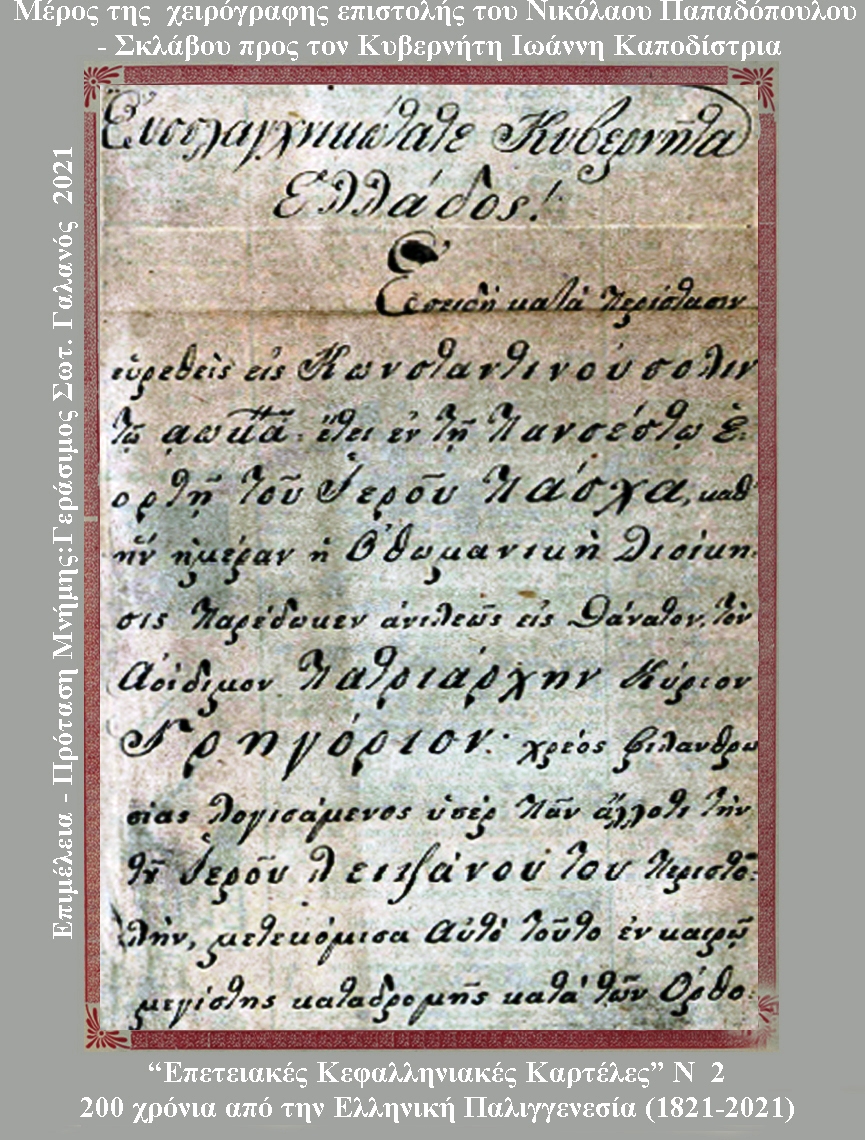 Μέρος της χειρόγραφης επιστολής του Νικόλαου Παπαδόπουλου
- Σκλάβου προς τον Κυβερνήτη Ιωάννη Καποδίστρια
Εὐσπλαγχνικώτατε Κυβερνῆτα
Ἑλλάδος!
Ἐπειδὴ κατὰ περίστασιν
εὑρεθεὶς εἰς Κωνσταντινούπολιν
τῷ αωκα: ἔτει ἐν τῇ πανσέπτῳ ἑ-
ορτῇ τοῦ Ἱεροῦ Πάσχα, καθ'
ἣν ἡμέραν ἡ Ὀθωμανικὴ Διοίκη-
σις παρέδωκεν ἀνιλεῶς εἰς θάνατον, τὸν
Ἀοίδιμον Πατριάρχην Κύριον
Γρηγόριον: χρέος φιλανθρω
πίας λογισάμενος ὑπὲρ πᾶν ἄλλοτι τὴν
τοῦ Ἱεροῦ λειψάνου του περιστο-
λήν, μετεκόμισα αὐτὸ τοῦτο ἐν καιρῷ
μεγίστης καταδρομῆς κατὰ τῶν Ὀρθο-
Επιμέλεια - Πρόταση Μνήμης:Γεράσιμος Σωτ. Γαλανός 2021
“Επετειακές Κεφαλληνιακές Καρτέλες” Ν 2
200 χρόνια από την Ελληνική Παλιγγενεσία (1821-2021)